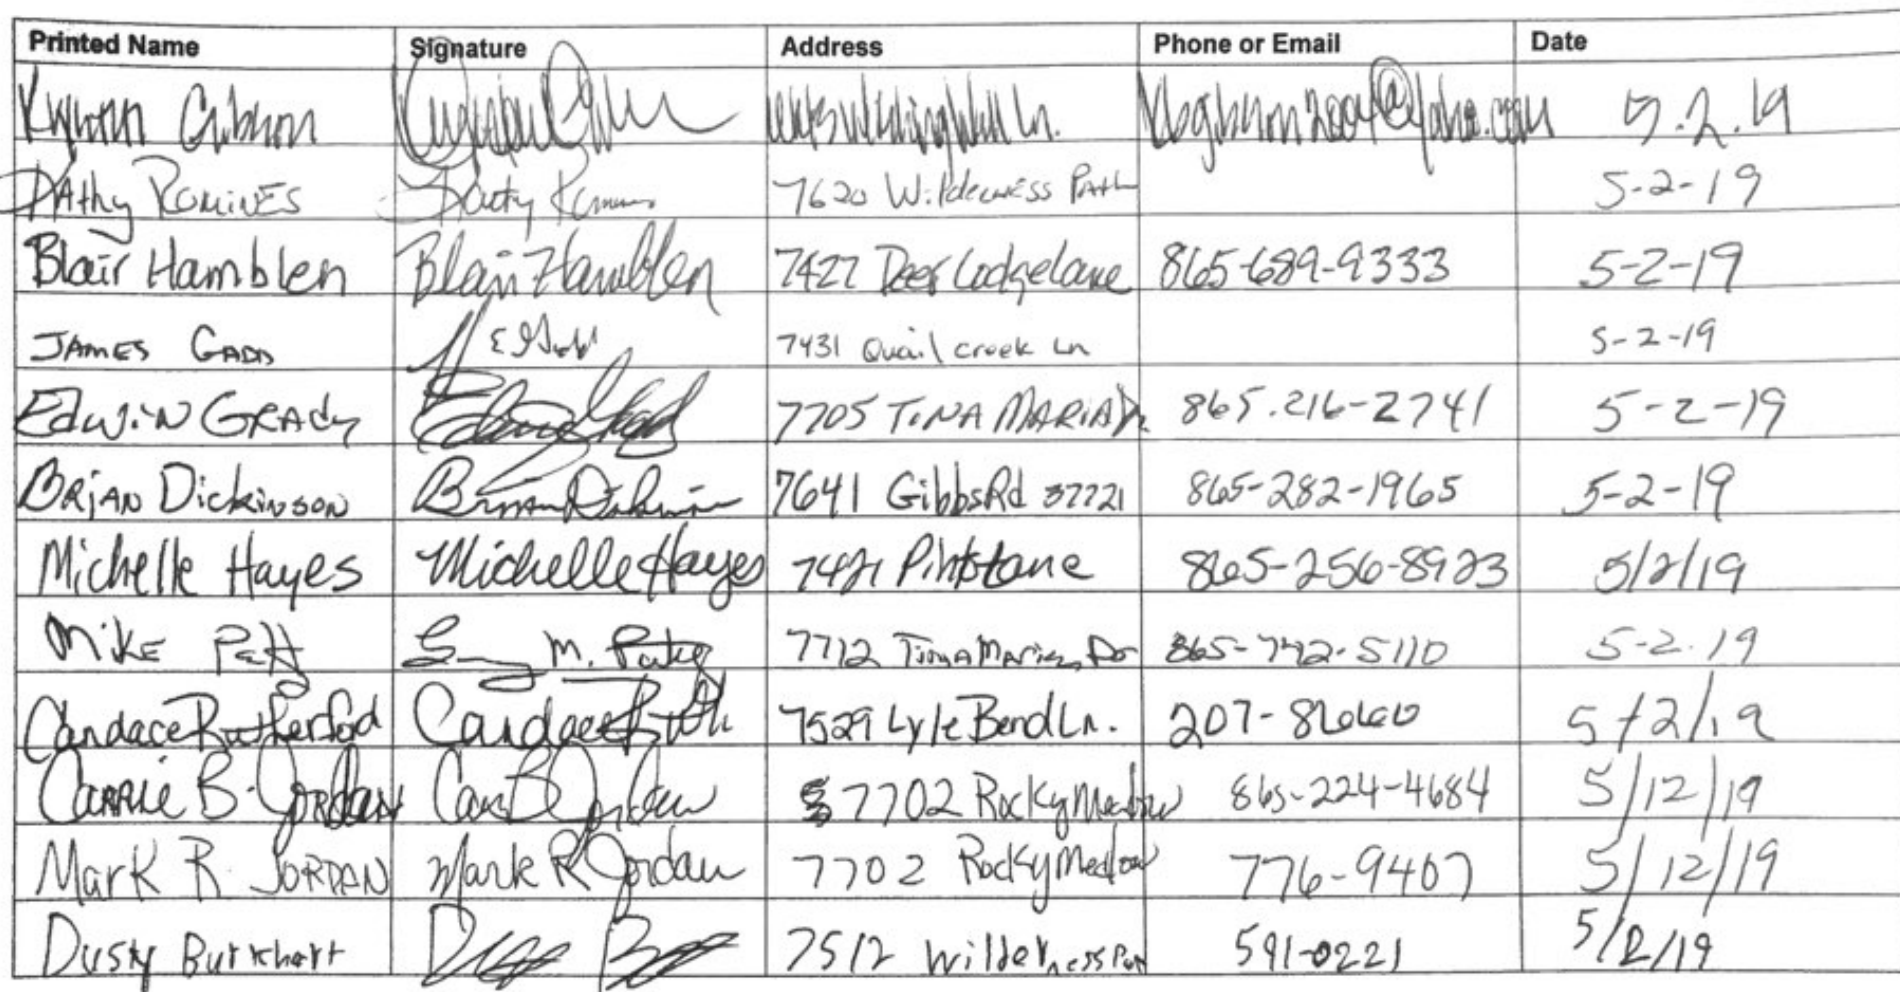 Printed Name Signature Address Phone or Email Date
Gibson Ln. 5.2.19
Kathy Romines Kathy 7620 Wilderness Path 5-2-19
Blair Hamblen Blair Hamblen 7427 Deer Lodge lane 865-689-9333 5-2-19
James Gadd 7431 Quail creek Ln 5-2-19
Edwin Grady 7705 Tina Maria Dr. 865.216-2741 5-2-19
Brian Dickinson Brian Dickinson 7641 Gibbs Rd 37721 865-282-1965 5-2-19
Michelle Hayes Michelle Hayes 7421 865-256-8923 5/2/19
Mike M. 7712 Tina Maria Dr 865-742-5110 5-2.19
Candace Rutherford Candace 7529 Lyle Bend Ln. 207- 5/2/19
Carrie B. Jordan B Jordan 7702 Rocky Meadow 865-224-4684 5/12/19
Mark R. Jordan Mark R Jordan 7702 Rocky Meadow 776-9407 5/12/19
Dusty Burkhart 7512 Wilderness 591-0221 5/2/19